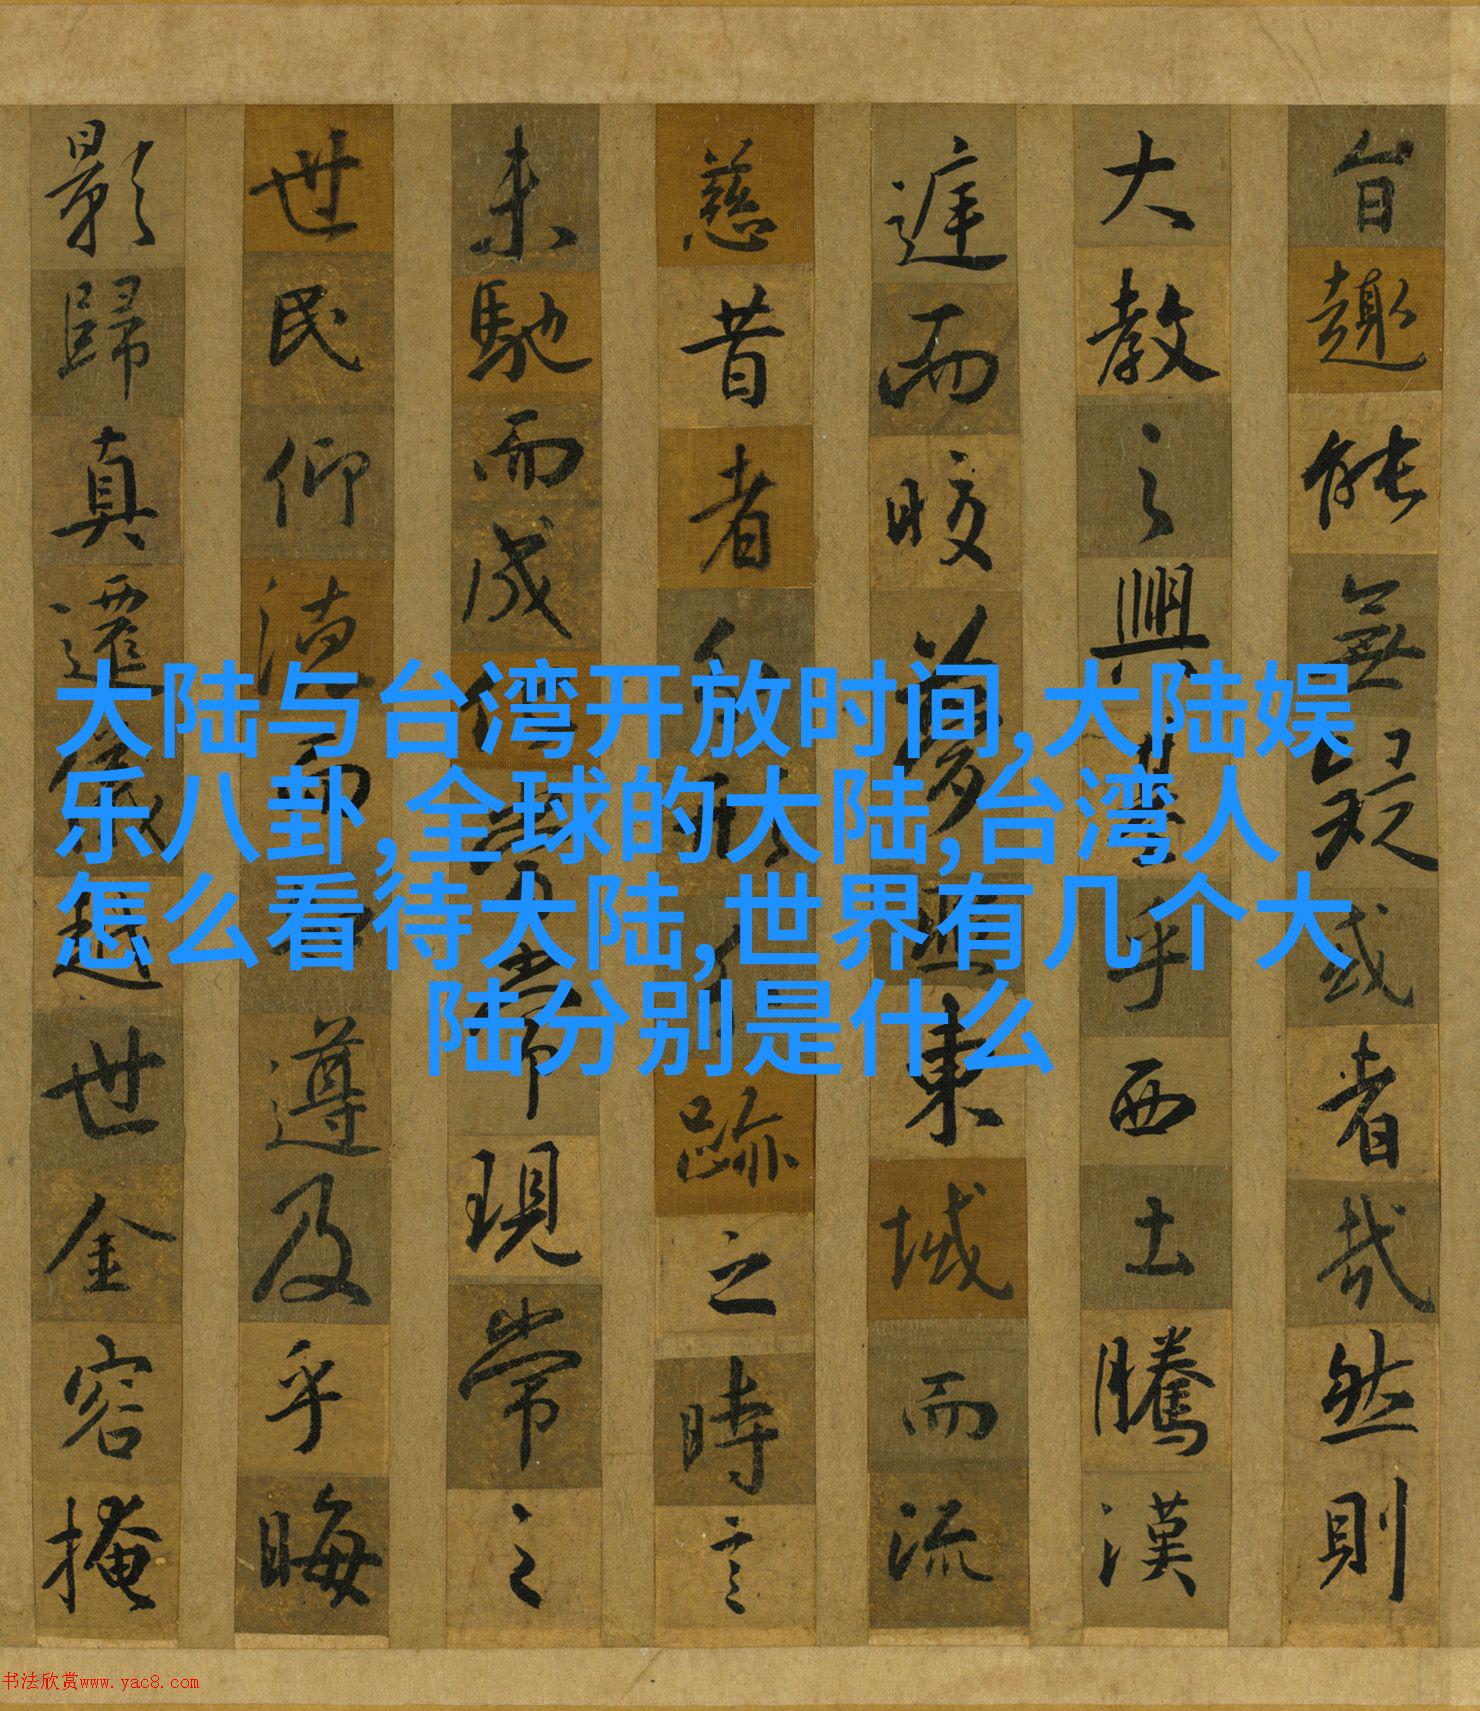 旨趣能無疑或者哉然則
大教之興基乎西土騰漢
庭而皎夢照東域而流
慈昔者分形分跡之時言
未馳而成化當常現常之
世民仰德而知遵及乎晦
影歸真遷儀越世金容掩
大陆与台湾开放时间,大陆娱
乐八卦,全球的大陆,台湾人
怎么看待大陆,世界有几个大
陆分别是什么
书法欣赏www.yac8.com